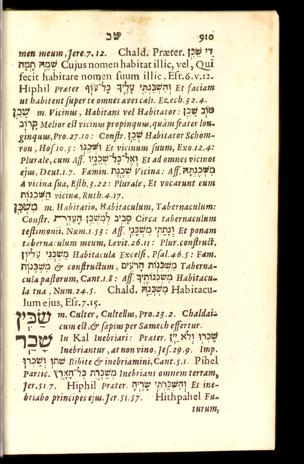 שכ 910
men meum, Jere.7.12. Chald. Præter. דִי שַׁכֵּן
שְׁמֵהּ תַּמָּה Cujus nomen habitat illic, vel, Qui
fecit habitare nomen suum illic, Esr.6.v.12.
Hiphil Præter וְהִשְׁכַּנְתִּי עָלֶיךָ כָּל־עוֹף Et faciam
ut habitent super te omnes aves cæli. Ezech.32.4.
שָׁכֵן m. Vicinus, Habitans vel Habitator: טוֹב שָׁכֵן
קָרוֹב Melior est vicinus propinquus, quàm frater lon-
ginquus, Pro.27.10: Constr. שְׁכַן Habitator Schom-
ron, Hos.10.5: וּשְׁכֵנוֹ Et vicinum suum, Exo.12.4:
Plurale, cum Aff. וְאֶל־כָּל־שְׁכֵנָיו Et ad omnes vicinos
ejus, Deut.1.7. Famin. שְׁכֶנֶת Vicina: Aff. מִשְּׁכֶנְתָּהּ
A vicina sua, Plurale, Et vocarunt eum
הַשְּׁכֵנוֹת vicinæ, Ruth.4.17.
מִשְׁכָּן m. Habitatio, Habitaculum, Tabernaculum:
Constr. סָבִיב לְמִשְׁכַּן הָעֵדֻת Circa tabernaculum
testimonii, Num.1.53: Aff. וְנָתַתִּי מִשְׁכָּנִי Et ponam
tabernaculum meum, Levit.26.11: Plur. construct.
מִשְׁכְּנֵי עֶלְיוֹן Habitacula Excelsi, Psal.46.5: Fœm.
מִשְׁכָּנוֹת & constructum, מִשְׁכְּנוֹת הָרֹעִים Taberna-
cula pastorum, Cant.1.8: Aff. מִשְׁכְּנֹתֶיךָ Habitacu-
la tua, Num.24.5. Chald. מִשְׁכְּנֵהּ Habitacu-
lum ejus, Esr.7.15.
שַׂכִּין m. Culter, Cultellus, Pro.23.2. Chaldai-
cum est, & sæpius per Samech effertur.
שָׁכַר In Kal Inebriari: Præter. שָׁכְרוּ וְלֹא יַיִן
Inebriantur, at non vino, Jes.29.9. Imp.
שְׁתוּ וְשִׁכְרוּ Bibite & inebriamini, Cant.5.1. Pihel
Partic. מְשַׁכֶּרֶת כָּל־הָאָרֶץ Inebrians omnem terram,
Jer.51.7. Hiphil Præter. וְהִשְׁכַּרְתִּי שָׂרֶיהָ Et ine-
briabo principes ejus, Jer.51.57. Hithpahel Fu-
turum,